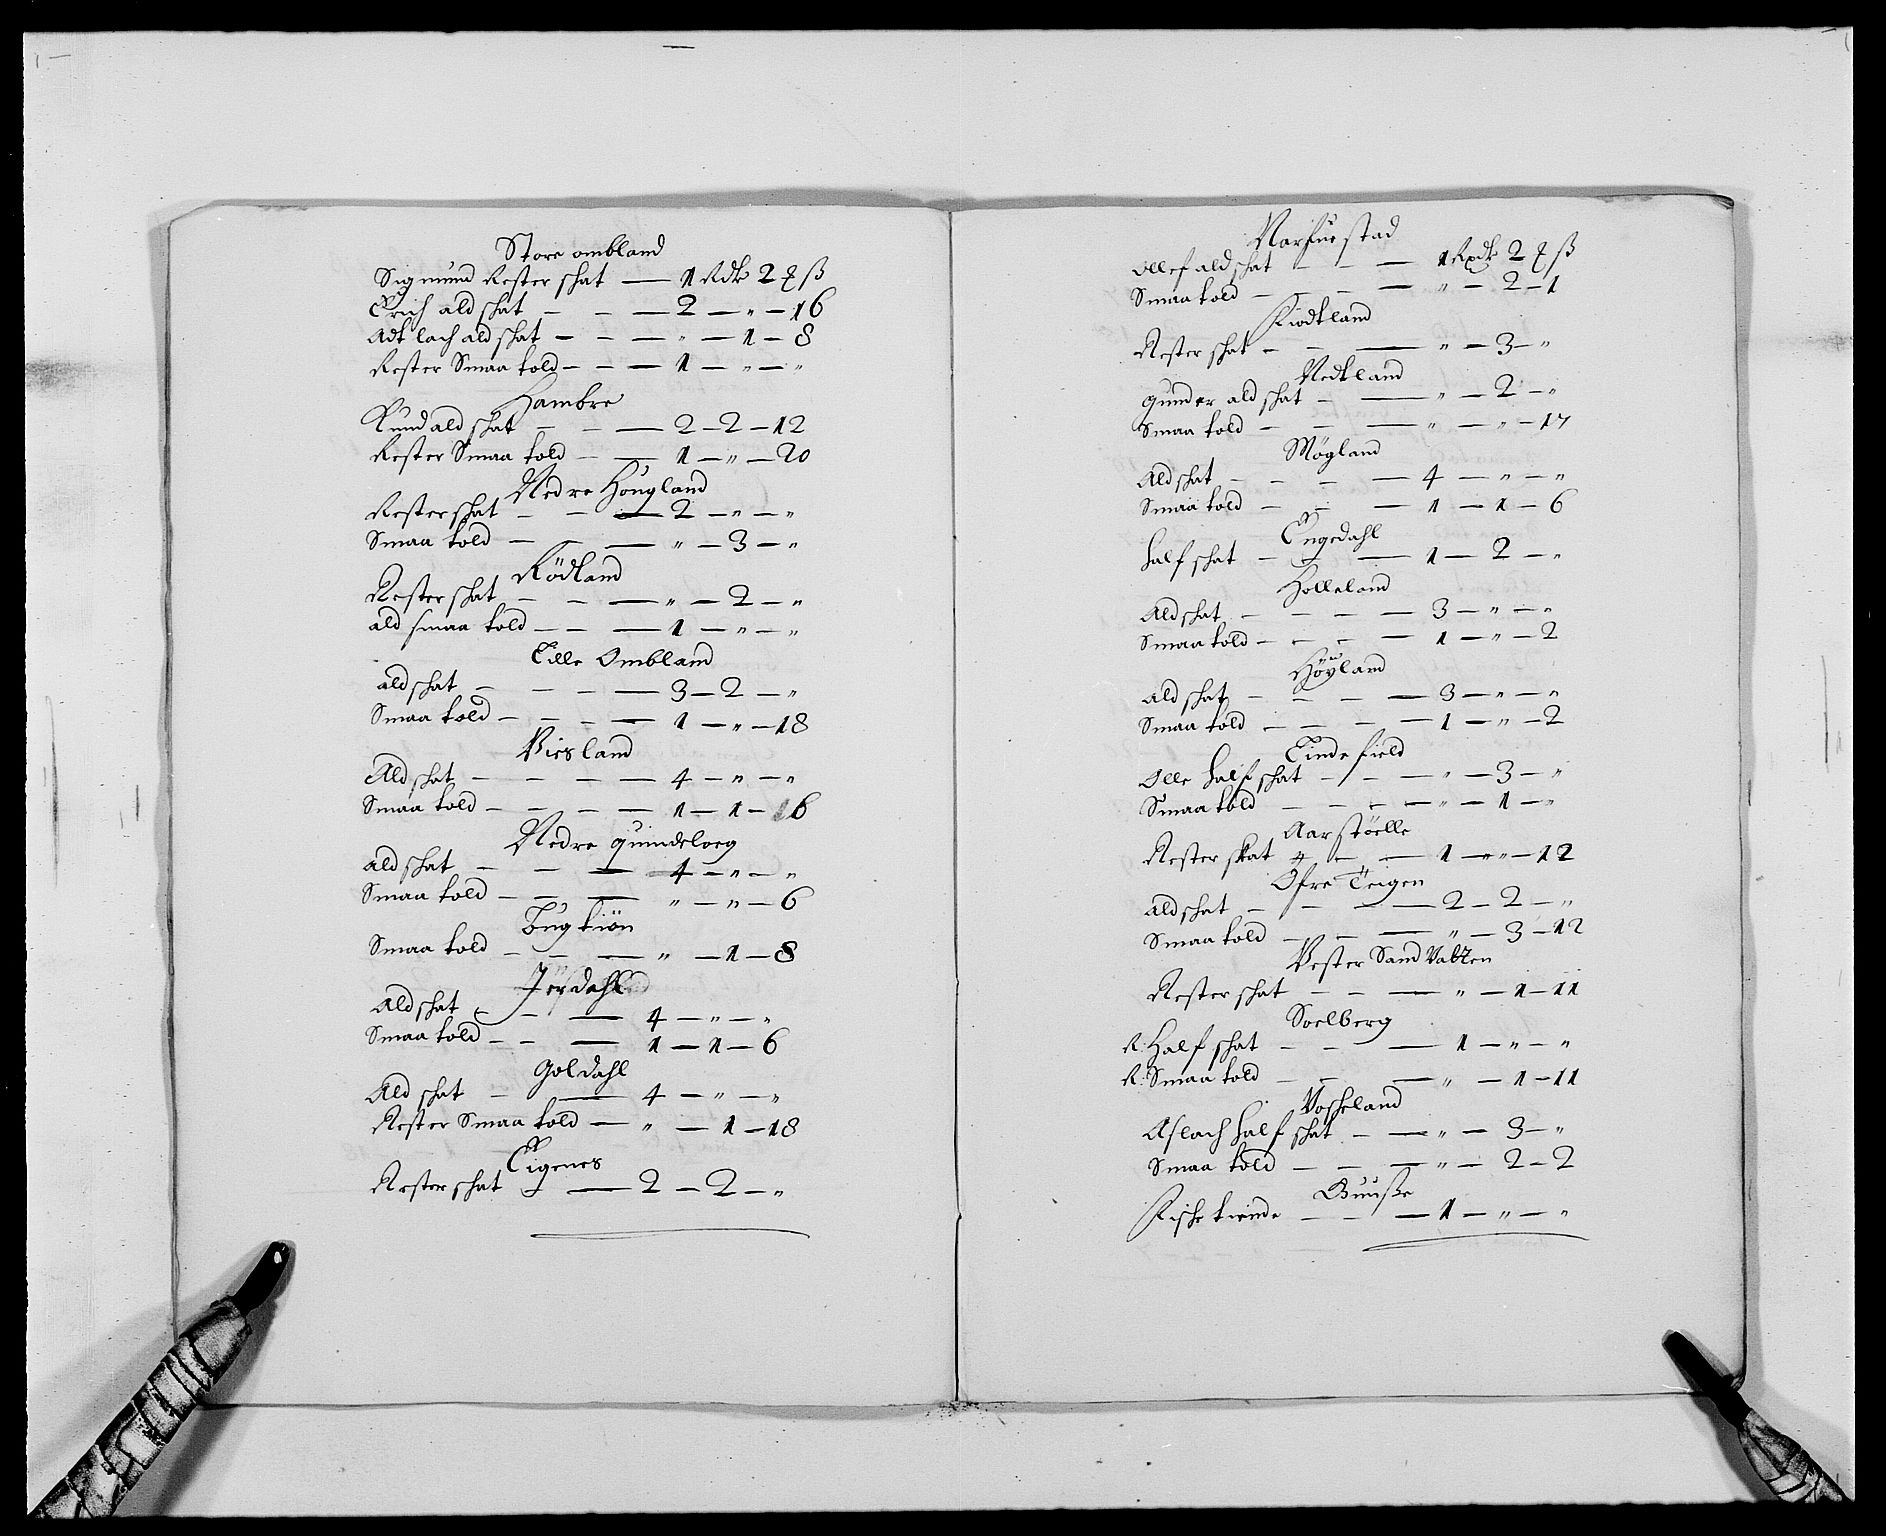 Store ombland
Sigmund Rester schat — 1 Rdr 2 ß
Erich ald schat — — — 2 — „ — 16
Adtlach ald schat — — — „ — 1 — 8
Rester Smaa told — — — 1 — „ — „
Hambre
Kund ald schat — — — 2 — 2 — 12
Rester Smaa told — — 1 — „ — 20
Nedre Hougland
Rester schat — — — 2 — „ — „
Smaa told — — — „ — 3 — „
Rödland
Rester schat — — — „ — 2 — „
ald smaa told — — — 1 — „ — „
Lille Ombland
ald schat — — — — 3 — 2 — „
Smaa told — — — — 1 — „ — 18
Virsland
Ald schat — — — — 4 — „ — „
Smaa told — — — — 1 — 1 — 16
Nedre quindeloeg
ald schat — — — 4 — „ — „
Smaa told — — — „ — „ — 6
Bugtiön
Smaa told — — — „ — 1 — 8
Jerdahl
Ald schat — — — 4 — „ — „
Smaa told — — — 1 — 1 — 6
Goldahl
Ald schat — — 4 — „ — „
Rester Smaa told — „ — 1 — 18
Eigenes
Rester schat — — 2 — 2 — „
Narfuestad
Ollef ald schat — — — 1 Rixdr 2 ß
Smaa told — — — — „ — 2 — 1
Kiodtland
Rester schat — — — „ — 3 — „
Nedtland
gunder ald schat — — „ — 2 — „
Smaa told — — — „ — „ — 17
Mögland
Ald schat — — — — 4 — „ — „
Smaa told — — — 1 — 1 — 6
Engedahl
half schat — — — 1 — 2 — „
Holleland
Ald schat — — — — 3 — „ — „
Smaa told — — — — 1 — „ — 2
Höyland
ald schat — — — — 3 — „ — „
Smaa told — — — — 1 — „ — 2
Lindefield
Olle half schat — — — „ — 3 — „
Smaa told — — — — „ — 1 — „
Aarstöelle
Rester skat — — — 1 — „ — 12
Ofre Teigen
ald schat — — — — 2 — 2 — „
Smaa told — — — „ — 3 — 12
Vester Sand Vatten
Rester schat — — — „ — 1 — 11
Soelberg
R: Half schat — — — 1 — „ — „
R: Smaa told — — — „ — 1 — 11
Voscheland
Aslach half schat — — „ — 3 — „
Smaa told — — — „ — 2 — 2
Guusße
Fische tiende — — — 1 — „ — „